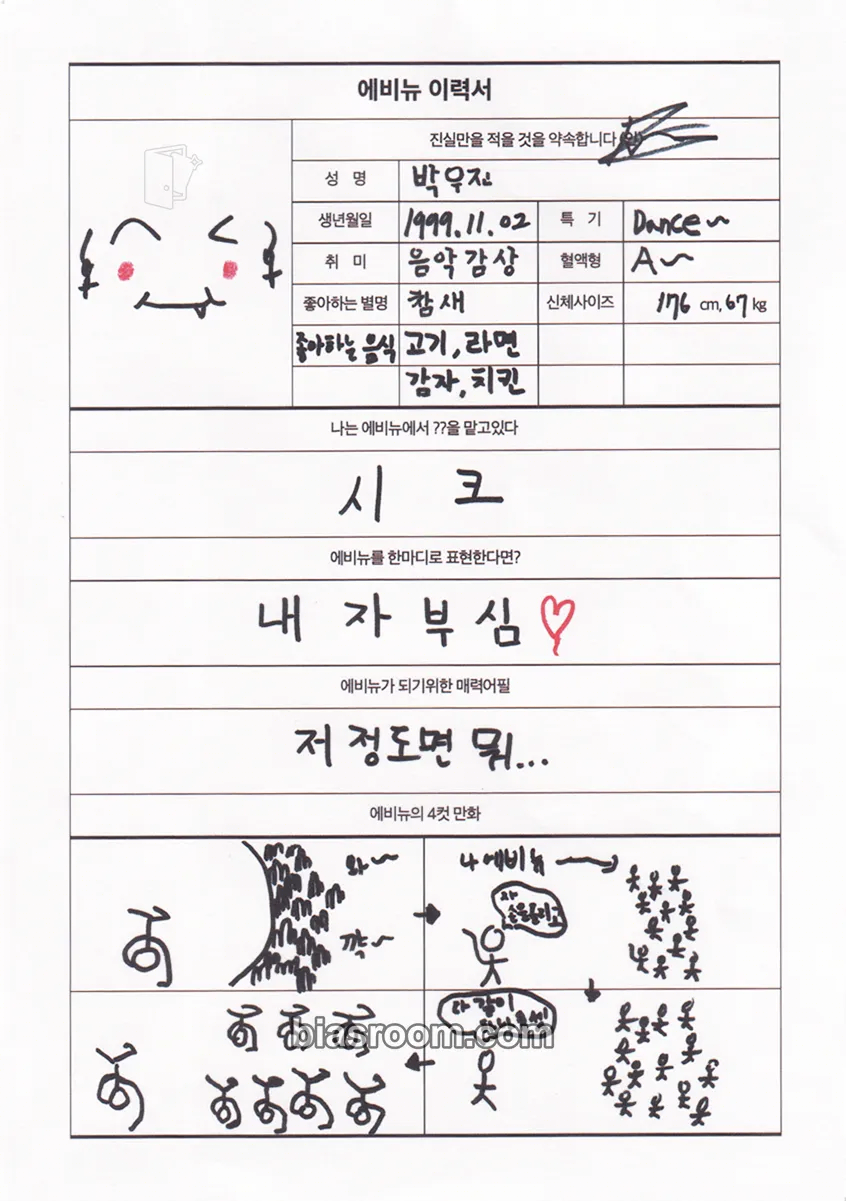 에비뉴 이력서
진실만을 적을 것을 약속합니다 (인)
성 명 박우진
생년월일 1999.11.02 특 기 Dance~
취 미 음악감상 혈액형 A~
좋아하는 별명 참새 신체사이즈 176 cm, 67 kg
좋아하는 음식 고기, 라면
감자, 치킨
나는 에비뉴에서 ??을 맡고있다
시 크
에비뉴를 한마디로 표현한다면?
내 자 부 심 ♡
에비뉴가 되기위한 매력어필
저 정도면 뭐...
에비뉴의 4컷 만화
와~
꺅~
나 에비뉴
자
손을 올리고
다 같이
biasroom.com